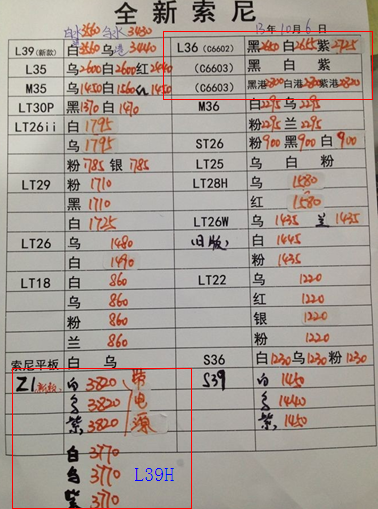 全新索尼
白水3560 乌水3430
13年10月6日
L39(新款) 白3560 乌港3440
L36(C6602) 黑2650 白2655 紫2725
L35 乌2600 白2600 红2440
(C6603) 黑 白 紫
M35 乌1450 白1560 1450
(C6603) 黑港2800 白港2800 紫港2820
LT30P 黑1370 白1470
M36 白2295 乌2295
LT26ii 白 1795
粉2295 兰2295
乌 1795
ST26 粉900 黑900 白900
粉1785 银1785
LT25 乌 白 粉
LT29 粉 1710
LT28H 乌 1580
黑 1710
红 1580
白 1725
LT26W 乌 1435 兰 1435
LT26 乌 1480
旧版 白 1445
白 1490
粉 1435
LT18 白 860
LT22 乌 1220
乌 860
红 1220
粉 860
银 1220
兰 860
粉 1220
索尼平板 白 乌
S36 白1230 乌1230 粉1230
Z1 白 3820 带
S39 白 1450
乌 3820 电
乌 1440
紫 3820 源
紫 1450
白 3770
乌 3770 L39H
紫 3770